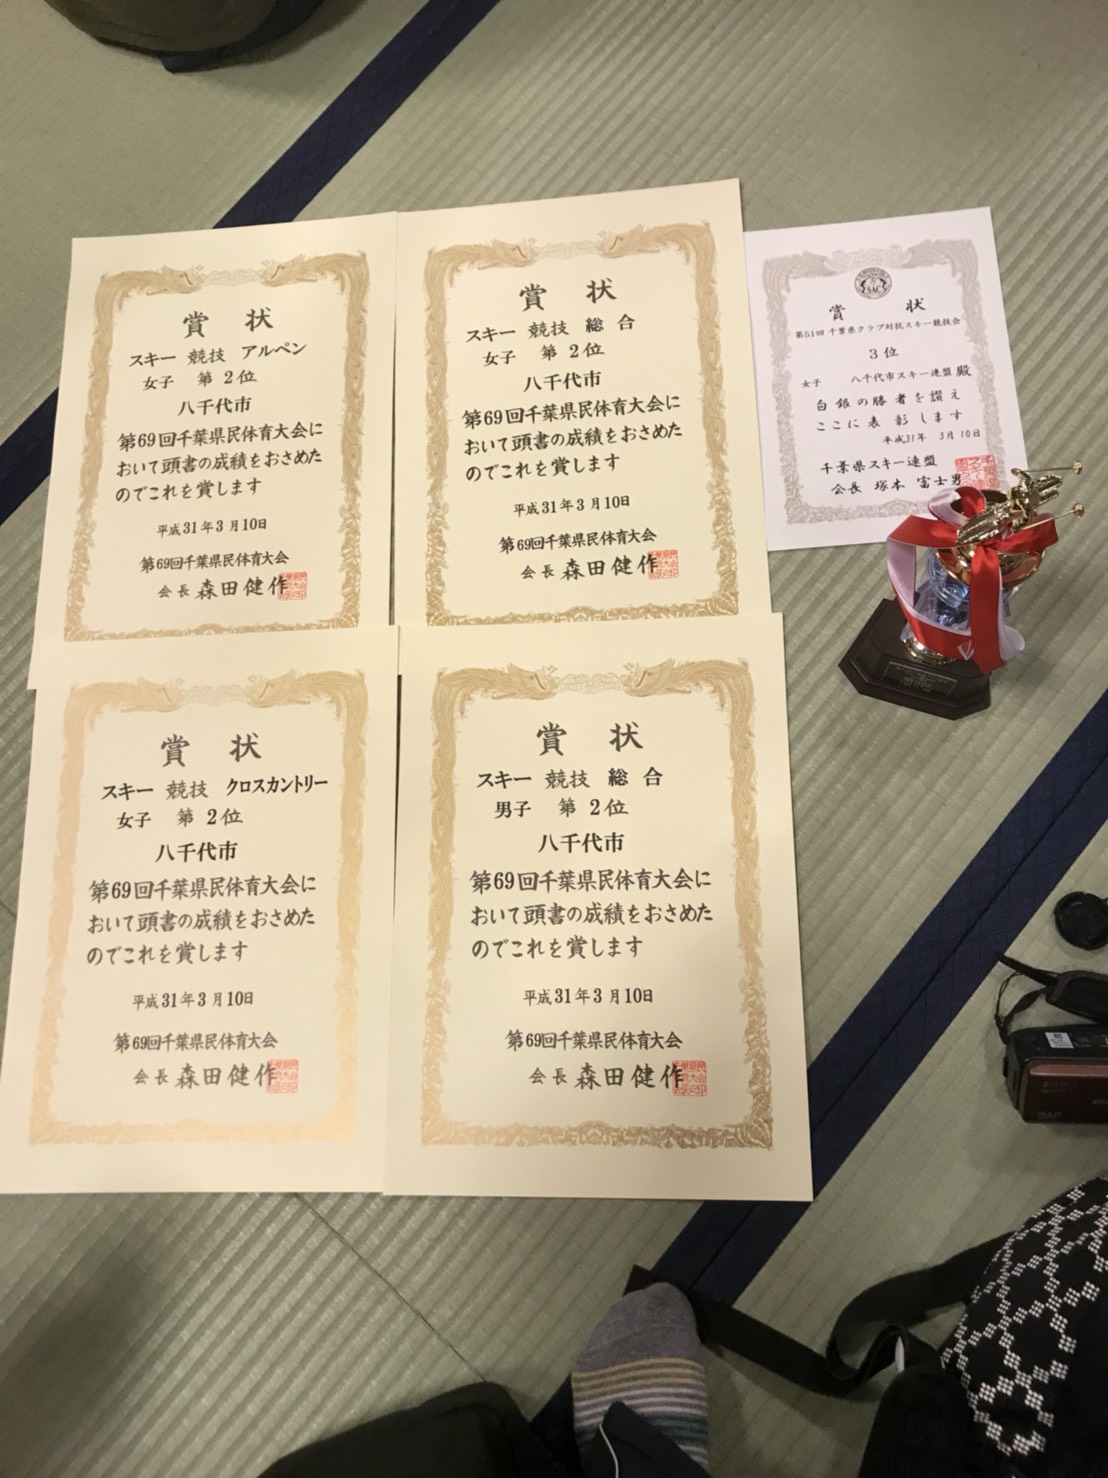 賞 状
スキー 競技 アルペン
女子 第2位
八千代市
第69回千葉県民体育大会に
おいて頭書の成績をおさめた
のでこれを賞します
平成31年3月10日
第69回千葉県民体育大会
会長 森田健作
賞 状
スキー 競技 総合
女子 第2位
八千代市
第69回千葉県民体育大会に
おいて頭書の成績をおさめた
のでこれを賞します
平成31年3月10日
第69回千葉県民体育大会
会長 森田健作
SAC
賞 状
第51回 千葉県クラブ対抗スキー競技会
3位
女子 八千代市スキー連盟 殿
白銀の勝者を讃え
ここに表彰します
平成31年 3月10日
千葉県スキー連盟
会長 塚本 富士男
賞 状
スキー 競技 クロスカントリー
女子 第2位
八千代市
第69回千葉県民体育大会に
おいて頭書の成績をおさめた
のでこれを賞します
平成31年3月10日
第69回千葉県民体育大会
会長 森田健作
賞 状
スキー 競技 総合
男子 第2位
八千代市
第69回千葉県民体育大会に
おいて頭書の成績をおさめた
のでこれを賞します
平成31年3月10日
第69回千葉県民体育大会
会長 森田健作
JVC